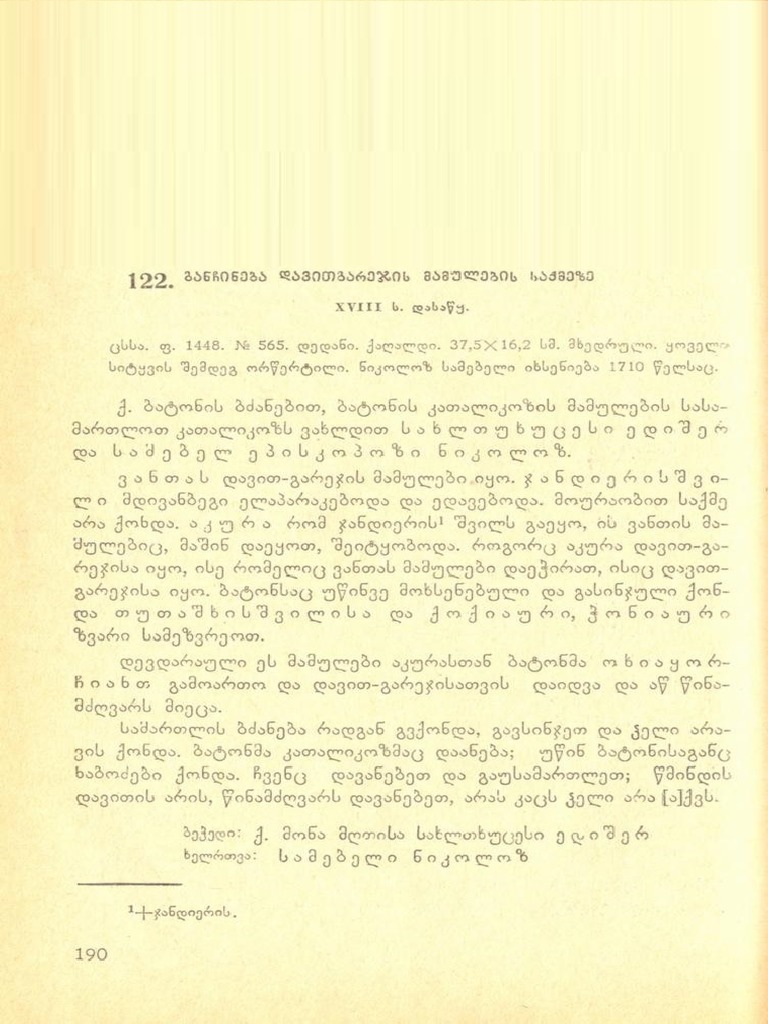 122. განჩინება დავითგარეჯის მამულების საქმეზე
XVIII ს. დასაწყ.
ცსსა. ფ. 1448. № 565. დედანი. ქაღალდი. 37,5×16,2 სმ. მხედრული. ყოველი
სიტყვის შემდეგ ორწერტილი. ნიკოლოზ სამებელი იხსენიება 1710 წელსაც.
ქ. ბატონის ბძანებით, ბატონის კათალიკოზის მამულების სასა-
მართლოთ კათალიკოზს ვახლდით სახლთუხუცესი ედიშერ
და სამებელ ეპისკოპოზი ნიკოლოზ.
ვანთას დავით-გარეჯის მამულები იყო. ჯანდიერისშვი-
ლი მდივანბეგი ელაპარაკებოდა და ედავებოდა. მოურაობით საქმე
არა ქონდა. აკურა რომ ჯანდიერის¹ შვილს გაეყო, ის ვანთის მა-
მულებიც, მაშინ დაეყოთ, შეიტყობოდა. როგორც აკურა დავით-გა-
რეჯისა იყო, ისე რომელიც ვანთას მამულები დაეჭირათ, ისიც დავით-
გარეჯისა იყო. ბატონსაც უწინვე მოხსენებული და გასინჯული ქონ-
და თუთაშხისშვილისა და ქოქიაური, ჭონიაური
ზვარი სამეზვრეოთ.
დევდარაული ეს მამულები აკურასთან ბატონმა ოხიაყორ-
ჩიახთ გამოართო და დავით-გარეჯისათვის დაიდვა და აწ წინა-
მძღვარს მიეცა.
სამართლის ბძანება რადგან გვქონდა, გავსინჯეთ და ჴელი არა-
ვის ქონდა. ბატონმა კათალიკოზმაც დაანება; უწინ ბატონისაგანც
ხაბოძები ქონდა. ჩვენც დავანებეთ და გაუსამართლეთ; წმინდის
დავითის არის, წინამძღვარს დავანებეთ, არას კაცს ჴელი არა [ა]ქვს.
ბეჭედი: ქ. მონა მღთისა სახლთხუცესი ედიშერ
ხელრთვა: სამებელი ნიკოლოზ
¹+ჯანდიერის.
190